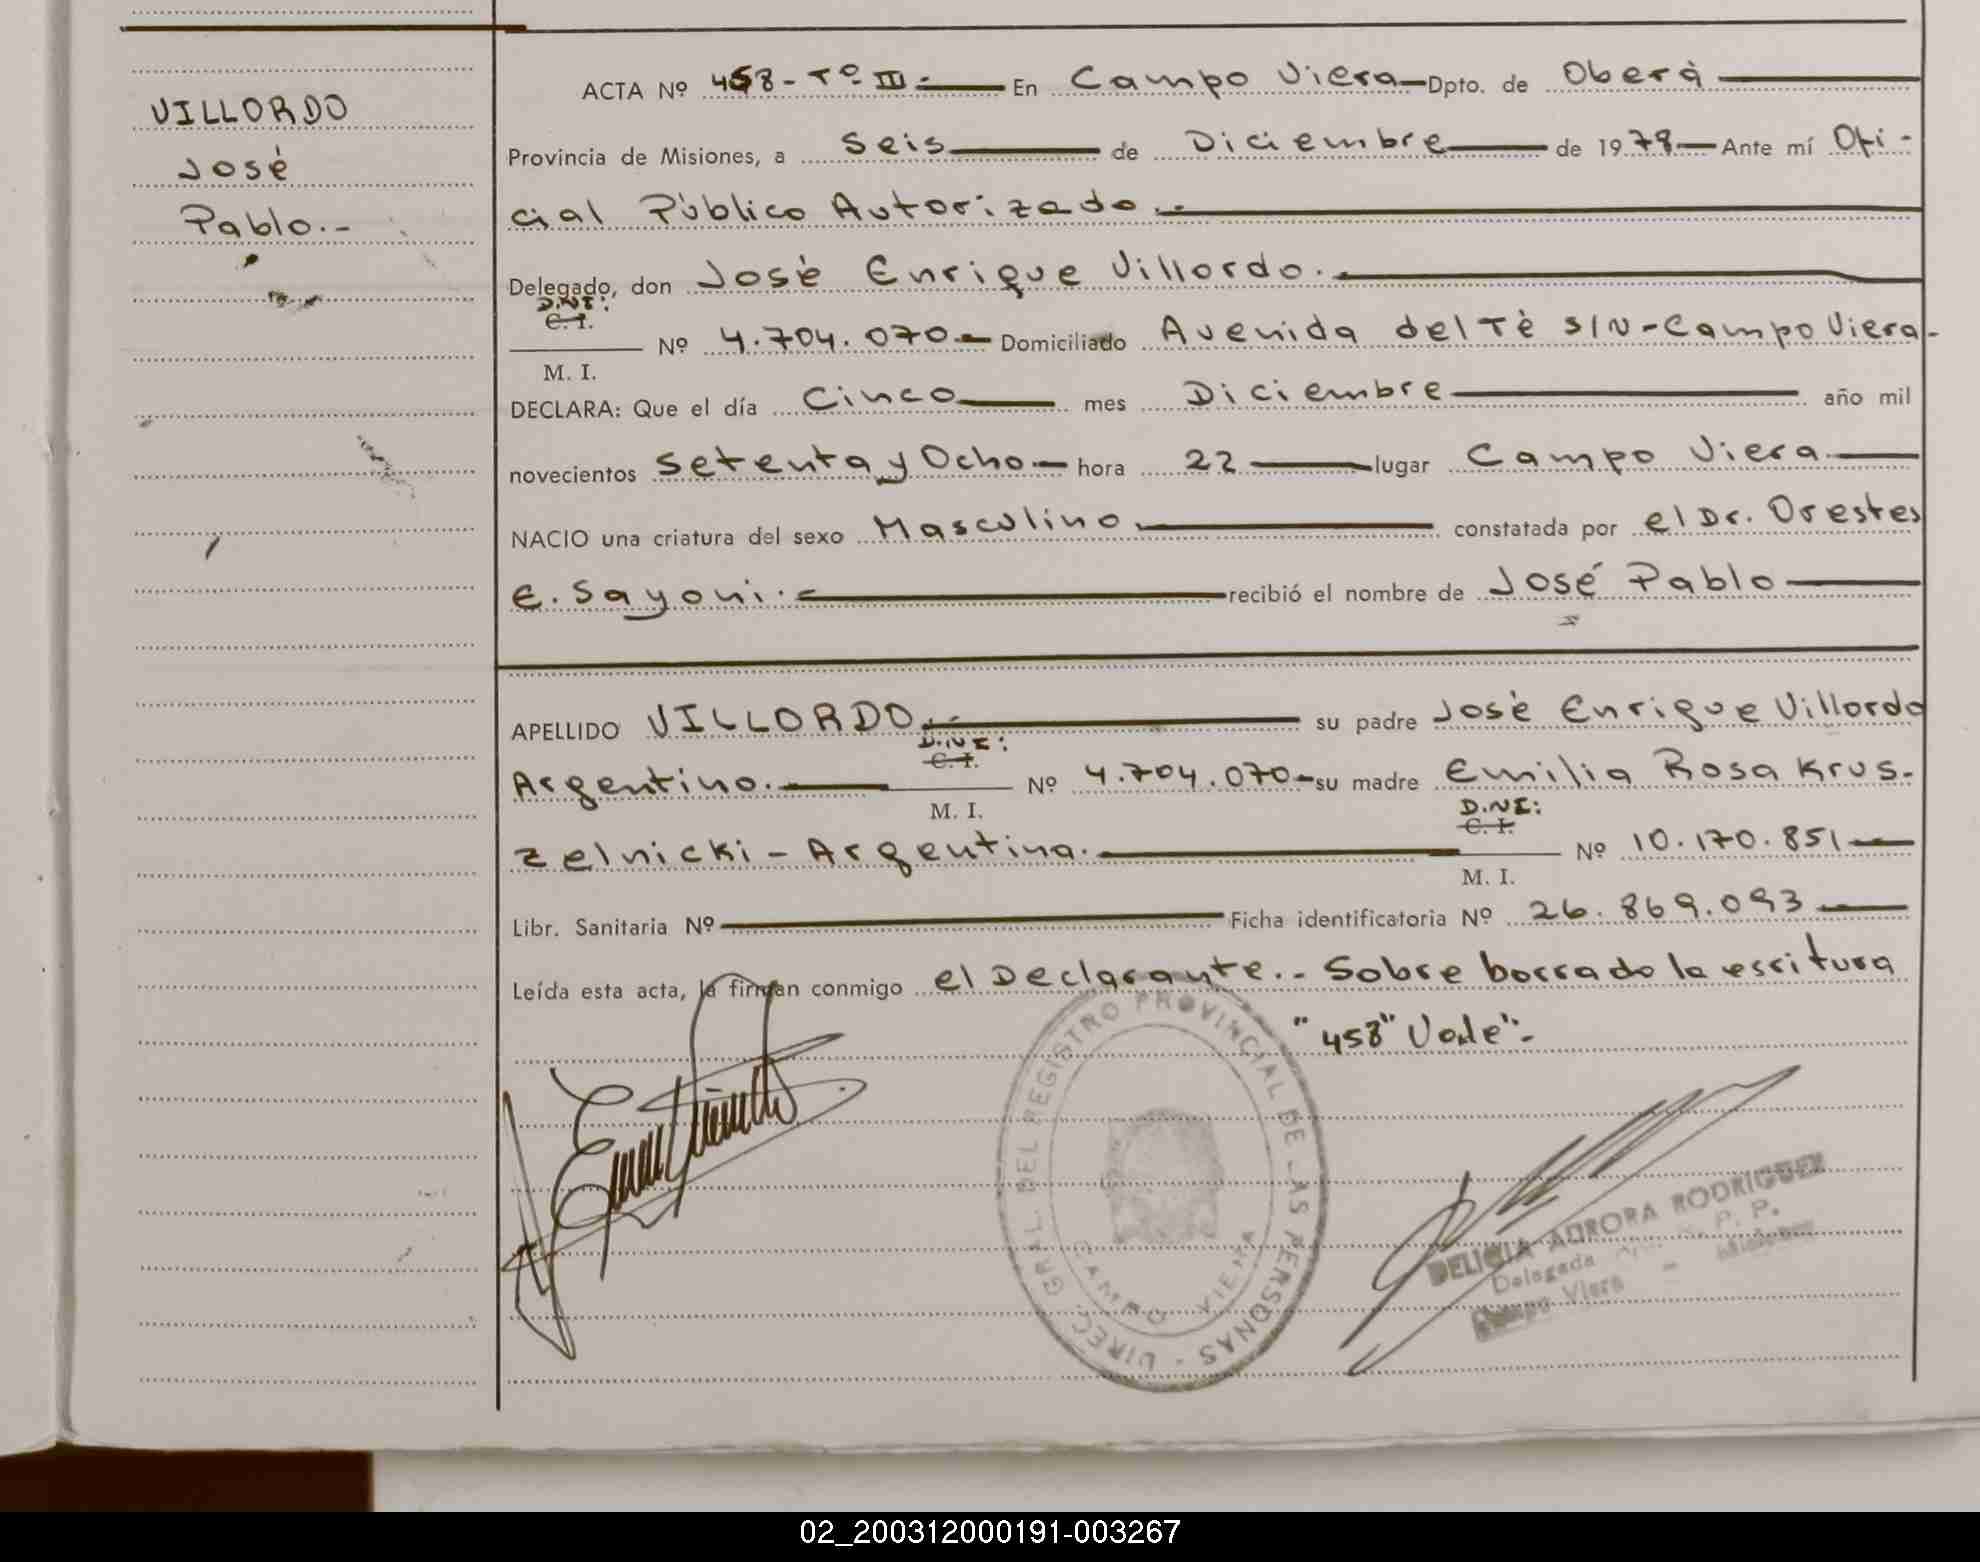 VILLORDO
José
Pablo.-
ACTA Nº 458 - Tº III - En Campo Viera Dpto. de Oberá
Provincia de Misiones, a Seis de Diciembre de 1978 Ante mí Ofi-
cial Público Autorizado.-
Delegado, don José Enrique Villordo.
D.N.I:
C. I.
Nº 4.704.070 Domiciliado Avenida del Té S/N - Campo Viera-
M. I.
DECLARA: Que el día Cinco mes Diciembre año mil
novecientos Setenta y Ocho hora 22 lugar Campo Viera
NACIO una criatura del sexo Masculino constatada por el Dr. Orestes
E. Sayoni.- recibió el nombre de José Pablo
APELLIDO VILLORDO.- su padre José Enrique Villordo
D.N.I:
C. I.
Argentino. Nº 4.704.070 su madre Emilia Rosa Krus-
M. I.
D.N.I:
C. I.
zelnicki - Argentina. Nº 10.170.851
M. I.
Libr. Sanitaria Nº Ficha identificatoria Nº 26.869.093
Leída esta acta, la firman conmigo el Declarante.. Sobre borrado la escritura
"458" Vale".-
DIREC. GRAL. DEL REGISTRO PROVINCIAL DE LAS PERSONAS -
CAMPO VIERA
DELICIA AURORA RODRIGUEZ
Delegada R. P. P.
Campo Viera - Misiones
02_200312000191-003267